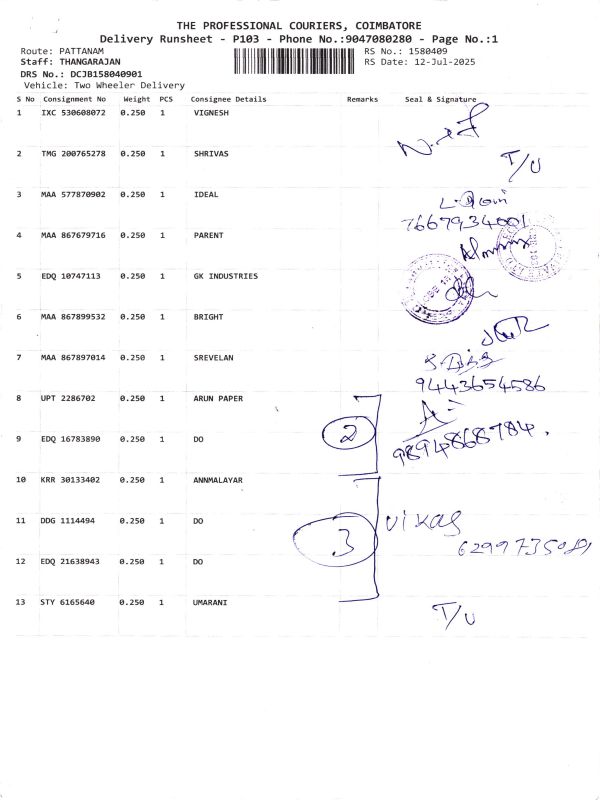 THE PROFESSIONAL COURIERS, COIMBATORE
Delivery Runsheet - P103 - Phone No.:9047080280 - Page No.:1
Route: PATTANAM RS No.: 1580409
Staff: THANGARAJAN RS Date: 12-Jul-2025
DRS No.: DCJB158040901
Vehicle: Two Wheeler Delivery
S No Consignment No Weight PCS Consignee Details Remarks Seal & Signature
1 IXC 530608072 0.250 1 VIGNESH
2 TMG 200765278 0.250 1 SHRIVAS T/U
3 MAA 577870902 0.250 1 IDEAL
7667934001
4 MAA 867679716 0.250 1 PARENT
5 EDQ 10747113 0.250 1 GK INDUSTRIES
6 MAA 867899532 0.250 1 BRIGHT
7 MAA 867897014 0.250 1 SREVELAN
9443654586
8 UPT 2286702 0.250 1 ARUN PAPER
9 EDQ 16783890 0.250 1 DO 2 9894868784.
10 KRR 30133402 0.250 1 ANNMALAYAR
11 DDG 1114494 0.250 1 DO 3 vikas
12 EDQ 21638943 0.250 1 DO
13 STY 6165640 0.250 1 UMARANI T/U